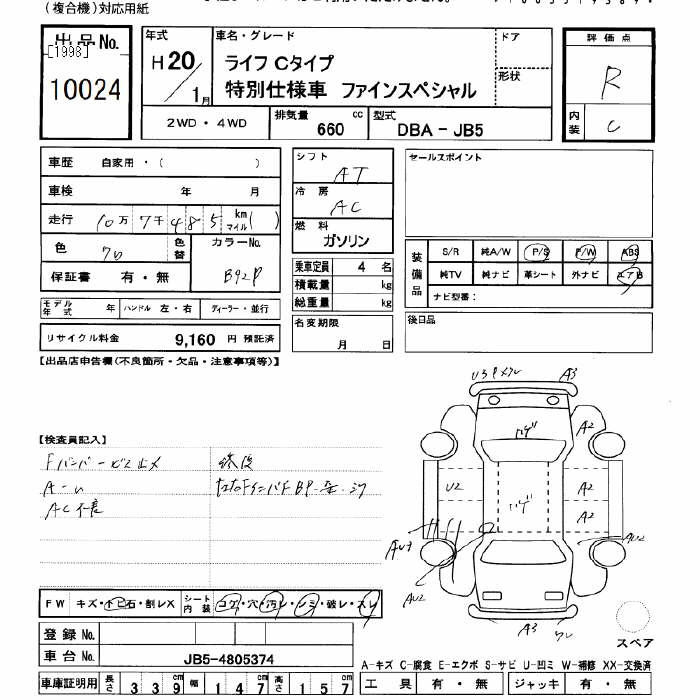 (複合機)対応用紙
出品No. [1998] 10024
年式 H20/1月
車名・グレード ライフ Cタイプ 特別仕様車 ファインスペシャル
ドア
形状
評価点 R
内装 C
2WD・4WD
排気量 660 cc
型式 DBA - JB5
車歴 自家用・( )
車検 年 月
走行 10万 7千 4 8 5 km マイル ( )
色 クロ 色替
カラーNo. B92P
保証書 有・無
モデル年式 年 ハンドル 左・右 ディーラー・並行
リサイクル料金 9,160 円 預託済
シフト AT
冷房 AC
燃料 ガソリン
乗車定員 4 名
積載量 kg
総重量 kg
名変期限 月 日
セールスポイント
装備品 S/R 純A/W P/S P/W ABS
純TV 純ナビ 革シート 外ナビ エアB
ナビ型番:
後日品
【出品店申告欄(不良箇所・欠品・注意事項等)】
【検査員記入】
Fバンパービス止メ
AC不良
修復
FW キズ・トビ石・割レX シート内装 コゲ・穴・汚レ・シミ・破レ・スレ
登録No.
車台No. JB5-4805374
車庫証明用 長さ 339cm 幅 147cm 高さ 157cm
A3
A2
ハゲ
U2
A2
ハゲ
A2
AU2
AU2
A3
スペア
A-キズ C-腐食 E-エクボ S-サビ U-凹ミ W-補修 XX-交換済
工具 有・無 ジャッキ 有・無